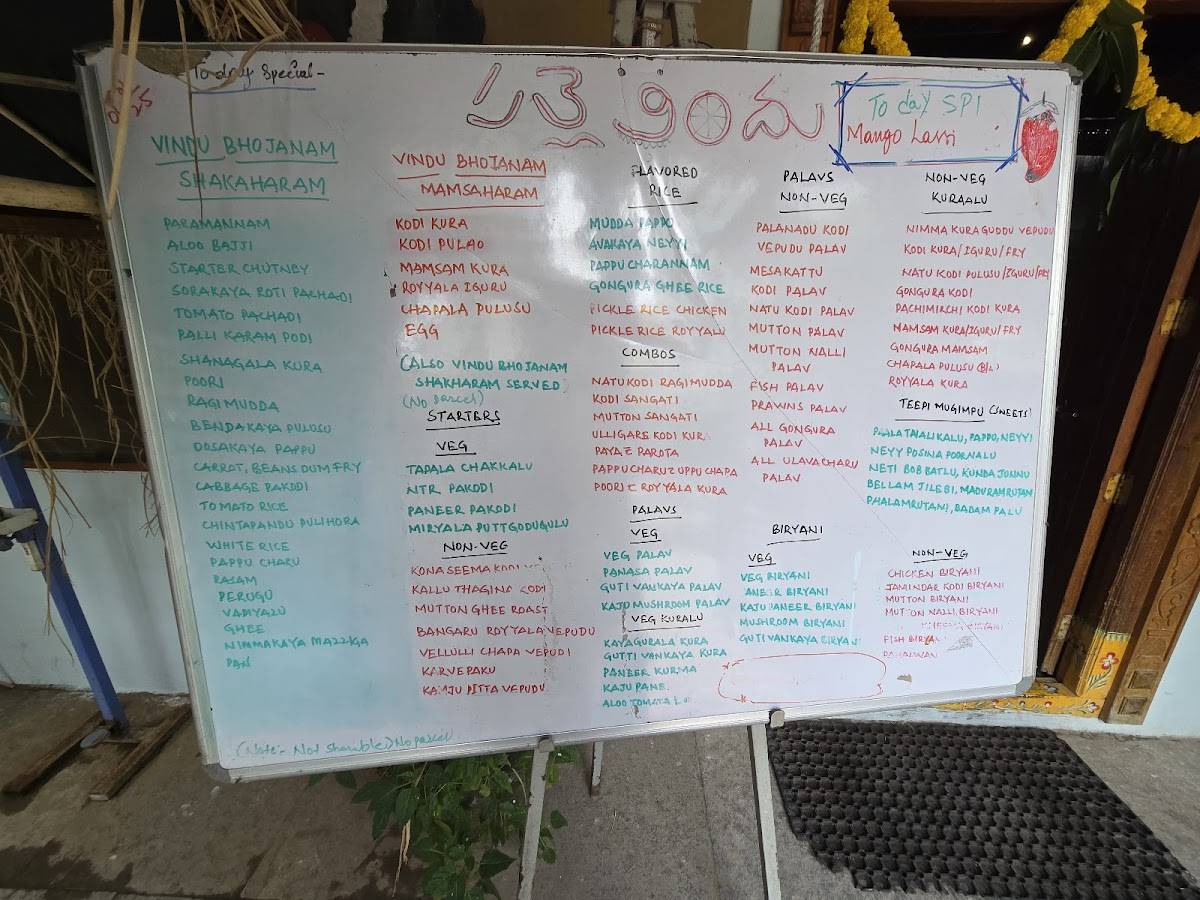 Today Special -
విందు
To day SPl
Mango Lassi
VINDU BHOJANAM
SHAKAHARAM
PARAMANNAM
ALOO BAJJI
STARTER CHUTNEY
SORAKAYA ROTI PACHADI
TOMATO PACHADI
PALLI KARAM PODI
SHANAGALA KURA
POORI
RAGI MUDDA
BENDAKAYA PULUSU
DOSAKAYA PAPPU
CARROT, BEANS DUM FRY
CABBAGE PAKODI
TOMATO RICE
CHINTAPANDU PULIHORA
WHITE RICE
PAPPU CHARU
RASAM
PERUGU
VADIYALU
GHEE
NIMMAKAYA MAZZIGA
PAN
(Note:- Not sharable) No parcel
VINDU BHOJANAM
MAMSAHARAM
KODI KURA
KODI PULAO
MAMSAM KURA
ROYYALA IGURU
CHAPALA PULUSU
EGG
(ALSO VINDU BHOJANAM
SHAKHARAM SERVED)
(No parcel)
STARTERS
VEG
TAPALA CHAKKALU
NTR PAKODI
PANEER PAKODI
MIRYALA PUTTGODUGULU
NON-VEG
KONASEEMA KODI
KALLU THAGINA KODI
MUTTON GHEE ROAST
BANGARU ROYYALA VEPUDU
VELLULLI CHAPA VEPUDI
KARVEPAKU
KAMJU PITTA VEPUDU
FLAVORED
RICE
MUDDA PAPPU
AVAKAYA NEYYI
PAPPU CHARANNAM
GONGURA GHEE RICE
PICKLE RICE CHICKEN
PICKLE RICE ROYYALU
COMBOS
NATUKODI RAGIMUDDA
KODI SANGATI
MUTTON SANGATI
ULLIGARE KODI KURA
PAYA C PAROTA
PAPPU CHARU C UPPU CHAPA
POORI C ROYYALA KURA
PALAVS
VEG
VEG PALAV
PANASA PALAV
GUTI VANKAYA PALAV
KAJU MUSHROOM PALAV
VEG KURALU
KAYAGURALA KURA
GUTTI VANKAYA KURA
PANEER KURMA
KAJU PANE
ALOO TOMATA
PALAVS
NON-VEG
PALANADU KODI
VEPUDU PALAV
MESAKATTU
KODI PALAV
NATU KODI PALAV
MUTTON PALAV
MUTTON NALLI
PALAV
FISH PALAV
PRAWNS PALAV
ALL GONGURA
PALAV
ALL ULAVACHARU
PALAV
BIRYANI
VEG
VEG BIRYANI
ANEER BIRYANI
KAJU PANEER BIRYANI
MUSHROOM BIRYANI
GUTI VANKAYA BIRYANI
NON-VEG
KURAALU
NIMMA KURA GUDDU VEPUDU
KODI KURA/IGURU/FRY
NATU KODI PULUSU/IGURU/FRY
GONGURA KODI
PACHIMIRCHI KODI KURA
MAMSAM KURA/IGURU/FRY
GONGURA MAMSAM
CHAPALA PULUSU (B/L)
ROYYALA KURA
TEEPI MUGIMPU (SWEETS)
PALATALIKALU, PAPPO, NEYYI
NEYY POSINA POORNALU
NETI BOBBATLU, KUNDA JUNNU
BELLAM JILEBI, MADURAMRUTAM
PHALAMRUTANI, BADAM PALU
NON-VEG
CHICKEN BIRYANI
JAMINDAR KODI BIRYANI
MUTTON BIRYANI
MUTTON NALLI BIRYANI
BIRYANI
FISH BIRYAN